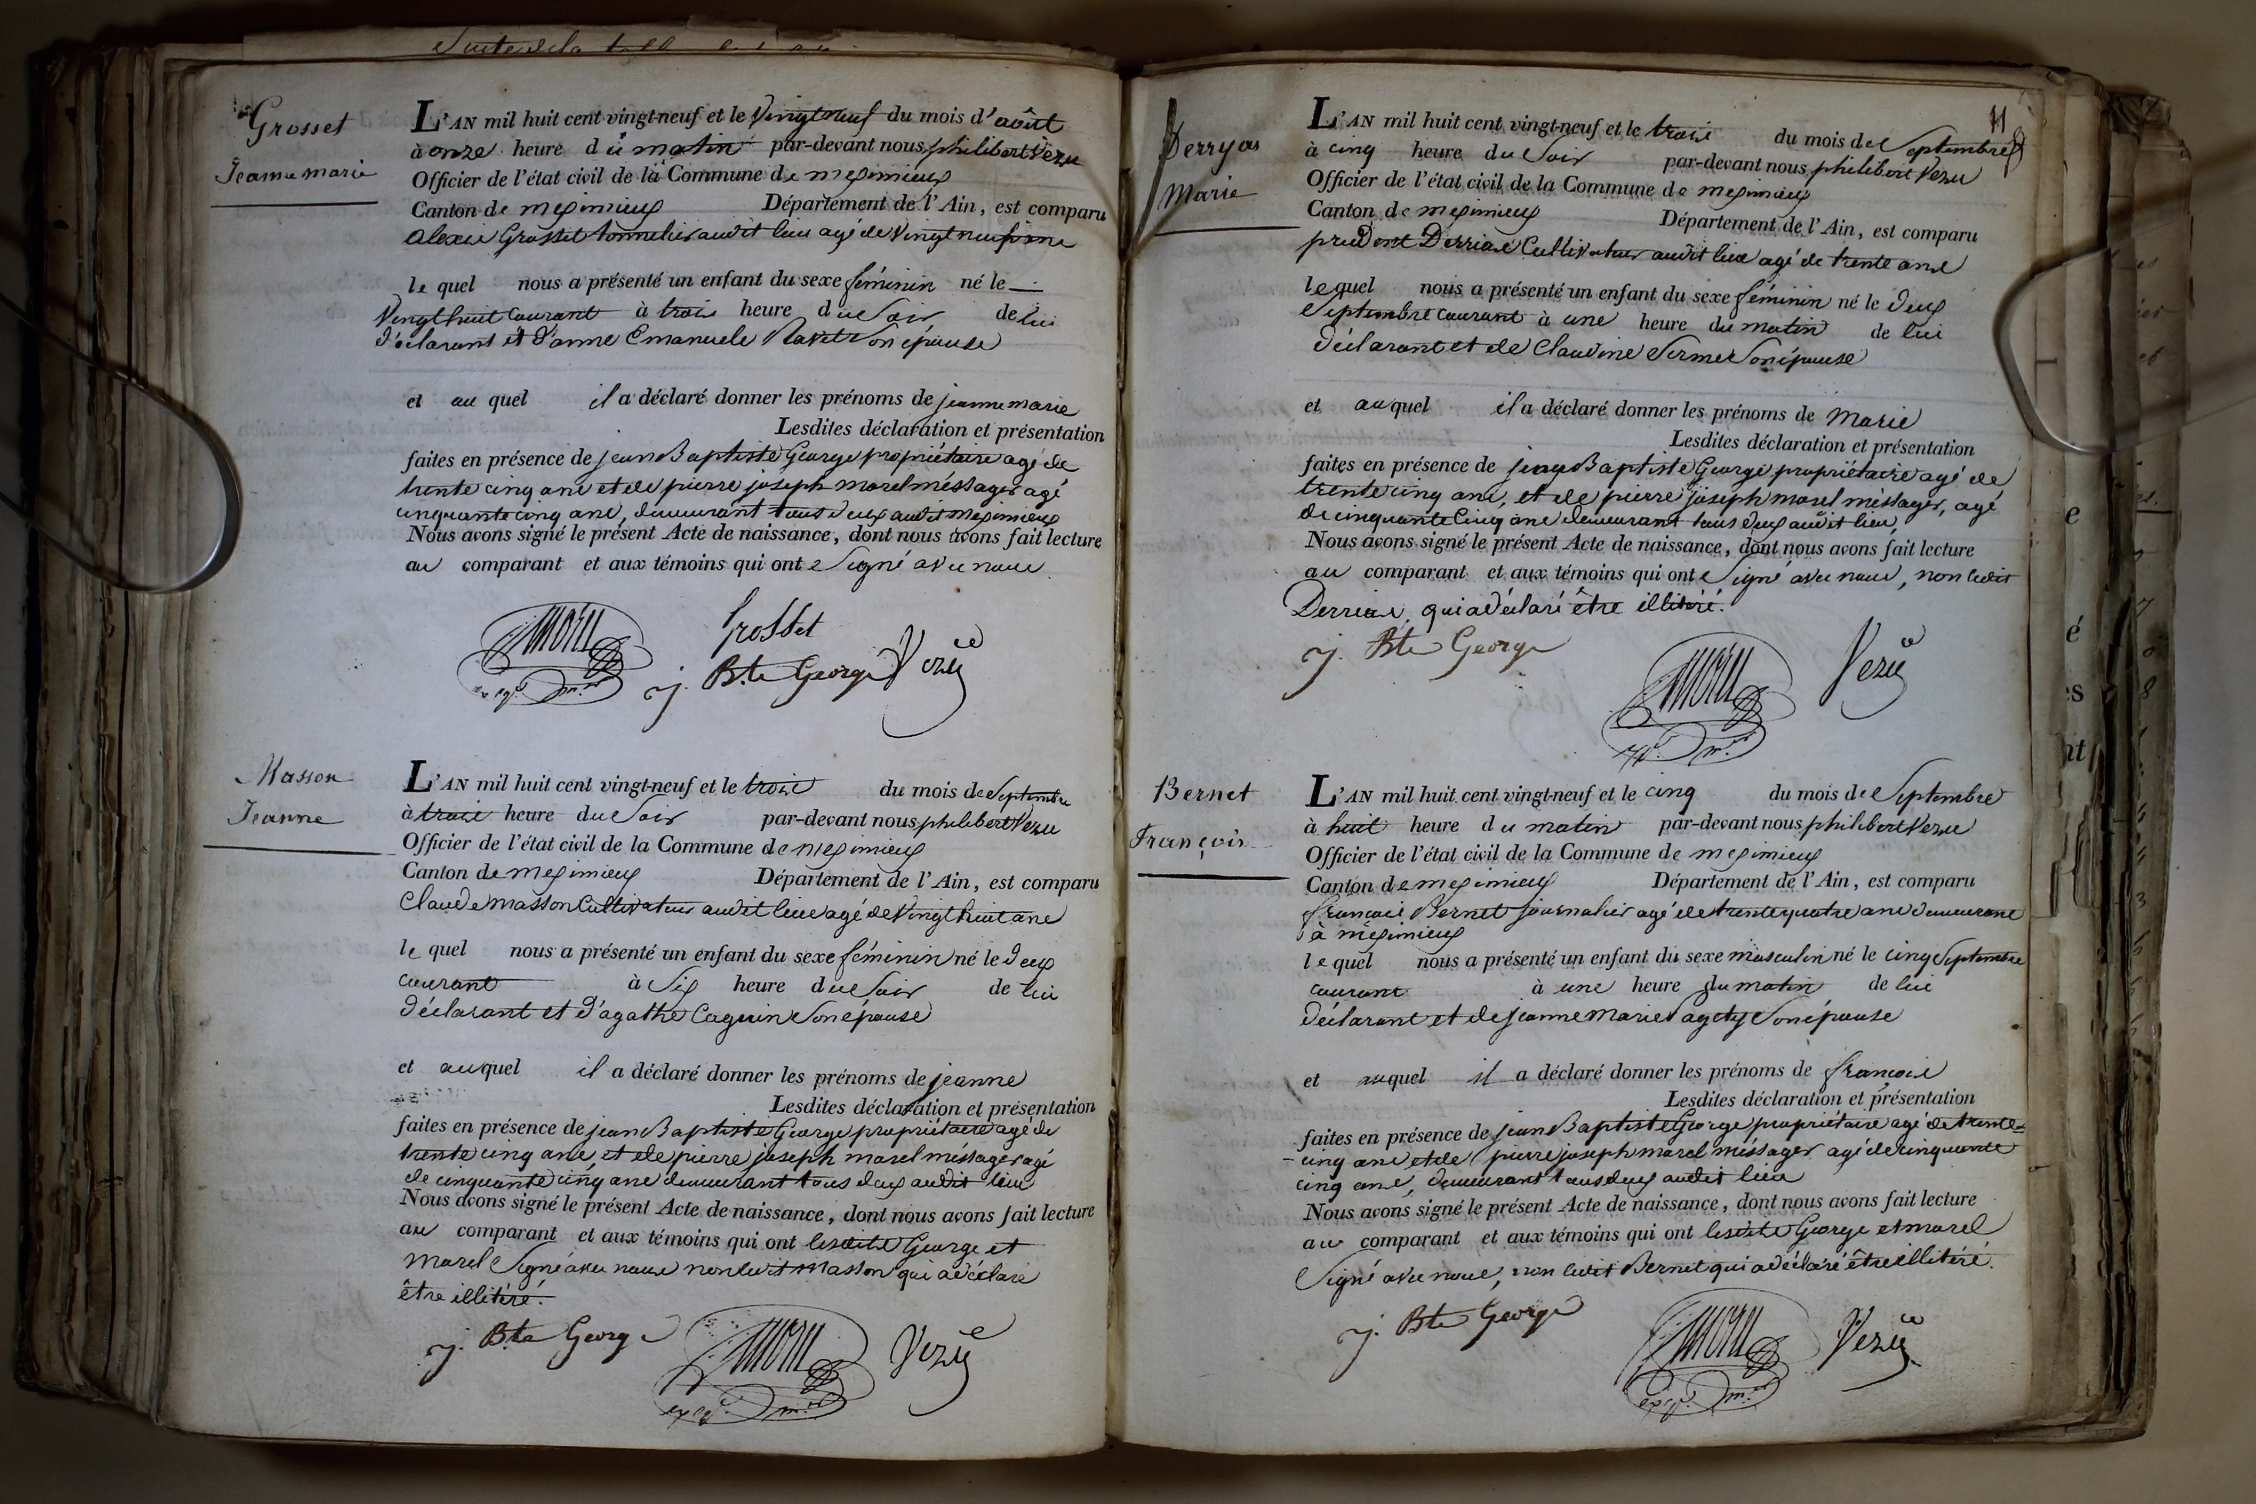 Grosset
Jeanne marie
L'AN mil huit cent vingt-neuf et le Vingt neuf du mois d'août
à onze heure du matin par-devant nous philibert Vezu
Officier de l'état civil de la Commune de meximieux
Canton de meximieux Département de l'Ain, est comparu
alexis Grosset tonnelier audit lieu agé de Vingt neuf ans
le quel nous a présenté un enfant du sexe féminin né le
Vingt huit courant à trois heure du Soir de lui
déclarant et d'anne Emanuele Ravet Son épouse
et au quel il a déclaré donner les prénoms de jeanne marie
Lesdites déclaration et présentation
faites en présence de jean Baptiste George propriétaire agé de
trente cinq ans et de pierre joseph morel méssager agé
cinquante cinq ans, demeurant tous deux audit meximieux
Nous avons signé le présent Acte de naissance, dont nous avons fait lecture
au comparant et aux témoins qui ont Signé avec nous
Grosset
j. Bte George Vezu
Masson
Jeanne
L'AN mil huit cent vingt-neuf et le trois du mois de Septembre
à trois heure du Soir par-devant nous philibert Vezu
Officier de l'état civil de la Commune de meximieux
Canton de meximieux Département de l'Ain, est comparu
Claude masson Cultivateur audit lieu agé de Vingt huit ans
le quel nous a présenté un enfant du sexe féminin né le deux
courant à Six heure du Soir de lui
déclarant et d'agathe Caguin Son épouse
et auquel il a déclaré donner les prénoms de jeanne
Lesdites déclaration et présentation
faites en présence de jean Baptiste George propriétaire agé de
trente cinq ans, et de pierre joseph morel méssager agé
de cinquante cinq ans demeurant tous deux audit lieu
Nous avons signé le présent Acte de naissance, dont nous avons fait lecture
au comparant et aux témoins qui ont lesdits George et
morel Signé avec nous non ledit Masson qui a déclaré
être illitéré.
j. Bte George Vezu
11
Derryas
Marie
L'AN mil huit cent vingt-neuf et le trois du mois de Septembre
à cinq heure du Soir par-devant nous philibert Vezu
Officier de l'état civil de la Commune de meximieux
Canton de meximieux Département de l'Ain, est comparu
prudent Derrias Cultivateur audit lieu agé de trente ans
le quel nous a présenté un enfant du sexe féminin né le deux
Septembre courant à une heure du matin de lui
déclarant et de Claudine Sermet Son épouse
et auquel il a déclaré donner les prénoms de Marie
Lesdites déclaration et présentation
faites en présence de jean Baptiste George propriétaire agé de
trente cinq ans, et de pierre joseph morel méssager, agé
de cinquante cinq ans demeurant tous deux audit lieu,
Nous avons signé le présent Acte de naissance, dont nous avons fait lecture
au comparant et aux témoins qui ont Signé avec nous, non ledit
Derrias, qui a déclaré être illitéré.
j. Bte George Vezu
Bernet
François
L'AN mil huit cent vingt-neuf et le cinq du mois de Septembre
à huit heure du matin par-devant nous philibert Vezu
Officier de l'état civil de la Commune de meximieux
Canton de meximieux Département de l'Ain, est comparu
françois Bernet journalier agé de trente quatre ans demeurant
à méximieux
le quel nous a présenté un enfant du sexe masculin né le cinq Septembre
courant à une heure du matin de lui
déclarant et de jeanne Marie Son épouse
et auquel il a déclaré donner les prénoms de françois
Lesdites déclaration et présentation
faites en présence de jean Baptiste George propriétaire agé de trente
cinq ans et de pierre joseph morel méssager agé de cinquante
cinq ans, demeurant tous deux audit lieu
Nous avons signé le présent Acte de naissance, dont nous avons fait lecture
au comparant et aux témoins qui ont lesdits George et morel
Signé avec nous, non ledit Bernet qui a déclaré être illitéré.
j. Bte George Vezu